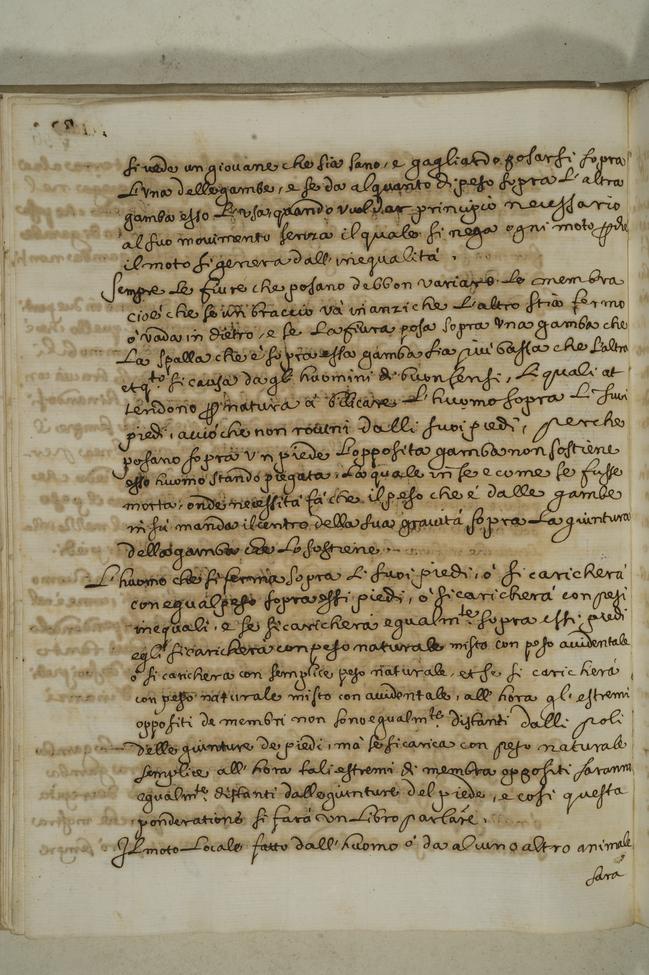 si vede un giovane che sia sano, e gagliardo posarsi sopra
l'una delle gambe, e se da alquanto di peso sopra l'altra
gamba esso l'usa quando vuol dar principio necessario
al suo movimento senza il quale si nega ogni moto pche
il moto si genera dall'inequalità.
Sempre le fiure che posano debbon variare le membra
cioè che se un braccio và inanzi che l'altro stia fermo
ò vada in dietro, e se la fiura posa sopra una gamba che
la spalla che è sopra essa gamba sia più bassa che l'altra
et qto si causa da gl'huomini di buon sensi, li quali at
tendono p natura à bilicare l'huomo sopra li suoi
piedi, aciò che non rouini dalli suoi piedi, perche
posano sopra un piede l'opposita gamba non sostiene
esso huomo stando piegata, la quale in se e come se fusse
morta, onde necessità fà che il peso che è dalle gambe
in sù manda il centro della sua gravità sopra la giuntura
della gamba che lo sostiene.
L'huomo che si ferma sopra li suoi piedi, ò si caricherà
con equal peso sopra essi piedi, ò si caricherà con pesi
inequali, e se si caricherà egualmte sopra essi piedi
egli si caricherà con peso naturale misto con peso accidentale
ò si caricherà con semplice peso naturale, et se si caricherà
con peso naturale misto con accidentale, all'hora gl'estremi
oppositi de membri non sono equalmte distanti dalli poli
delle giunture de piedi, mà se si carica con peso naturale
semplice all'hora tali estremi di membra oppositi saranno
equalmte distanti dalle giunture del piede, e così questa
ponderatione si farà un libro parlare.
Il moto locale fatto dall'huomo ò da alcuno altro animale
sarà